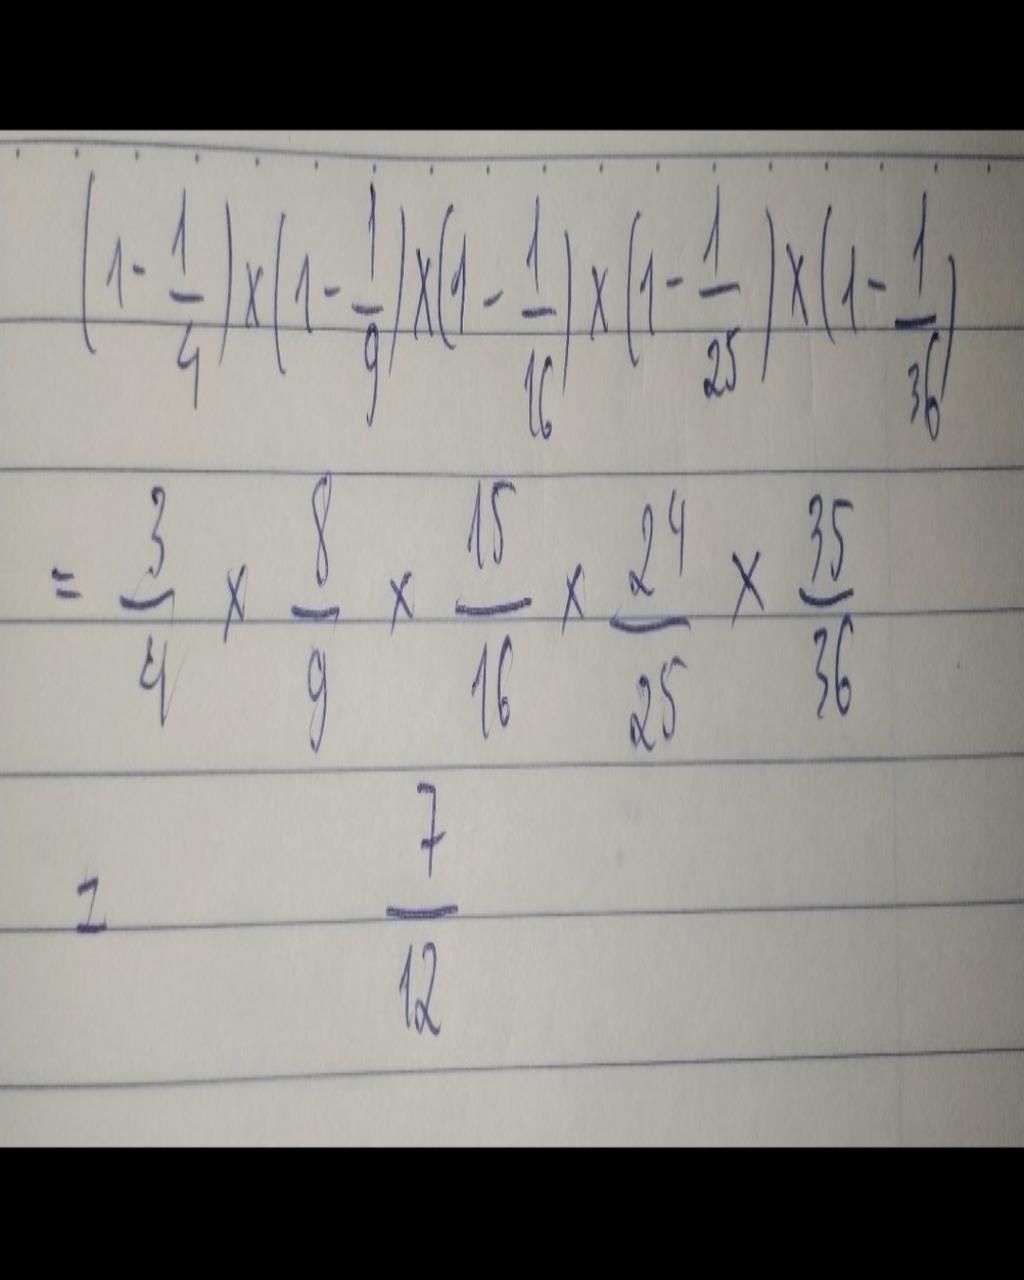 (1 - 1/4) x (1 - 1/9) x (1 - 1/16) x (1 - 1/25) x (1 - 1/36)
= 3/4 x 8/9 x 15/16 x 24/25 x 35/36
= 7/12